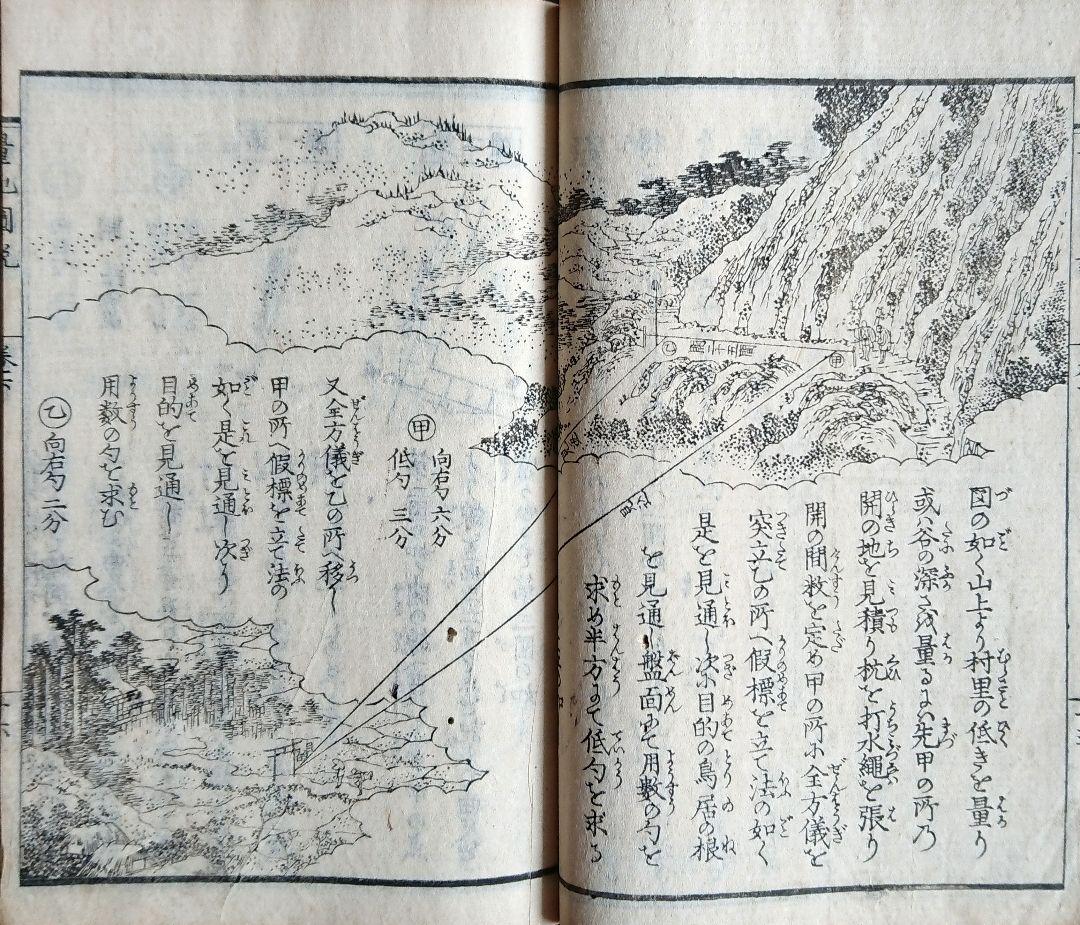 図の如く山上より村里の低きを量り
或ハ谷の深さを量るにハ先甲の所乃
開の地を見積り杭を打水縄を張り
開の間数を定め甲の所に全方儀を
突立乙の所へ假標を立て法の如く
是を見通し次に目的の鳥居の根
を見通し盤面にて用数の勺を
求め半方にて低勺を求る
甲
向右勺六分
低勺 三分
又全方儀を乙の所へ移し
甲の所へ假標を立て法の
如く是を見通し次り
目的を見通し
用数の勺を求む
乙 向右勺 二分
量地圖説
巻六
甲
乙